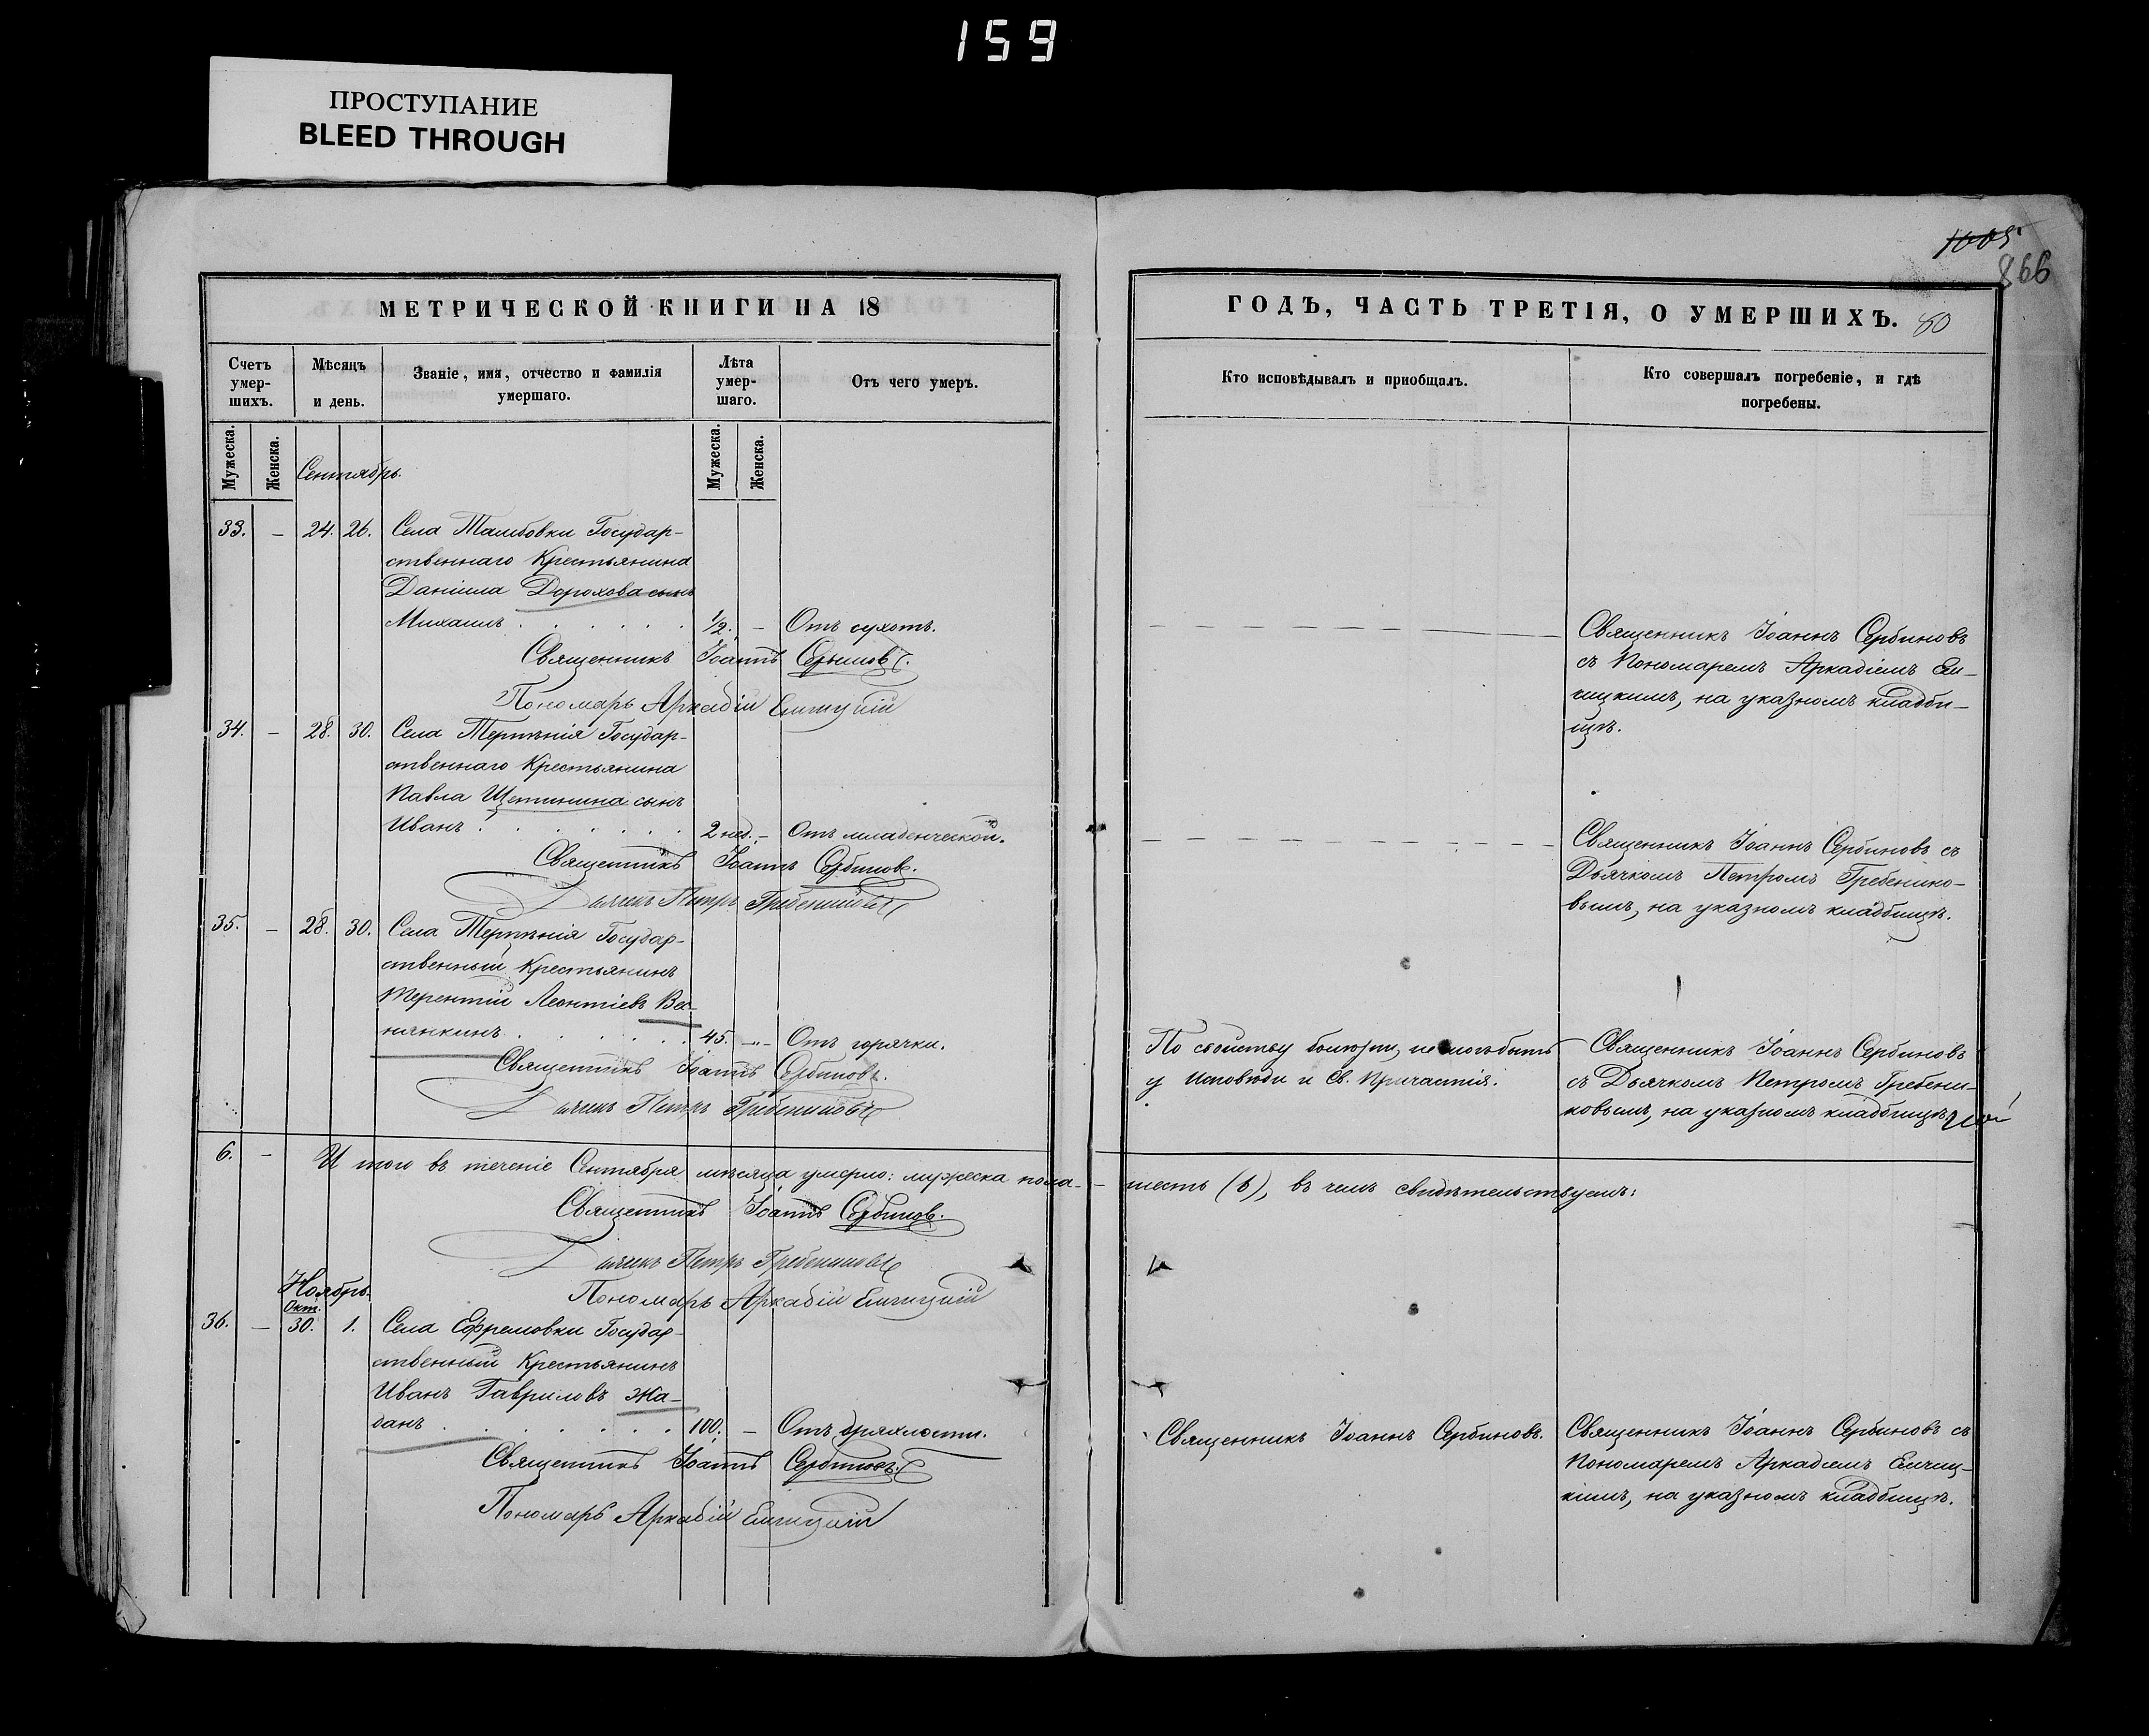 159
ПРОСТУПАНИЕ
BLEED THROUGH
1005
866
МЕТРИЧЕСКОЙ КНИГИ НА 18
Счетъ умер-шихъ.
Мѣсяцъ и день.
Званіе, имя, отчество и фамилія умершаго.
Лѣта умер-шаго.
Отъ чего умеръ.
Мужеска.
Женска.
Мужеска.
Женска.
Сентябрь.
33. – 24. 26. Села Тамбовки Государ-
ственнаго Крестьянина
Даніила Дорохова сынъ
Михаилъ . . . . . . ½. – Отъ сухотъ.
Священникъ Іоаннъ Сербиновъ.
Пономарь Аркадій Емчицкій
34. – 28. 30. Села Терпѣнія Государ-
ственнаго Крестьянина
Павла Щетинина сынъ
Иванъ . . . . . . 2 нед. – Отъ младенческой.
Священникъ Іоаннъ Сербиновъ.
Дьячекъ Петръ Гребениковъ
35. – 28. 30. Села Терпѣнія Государ-
ственный Крестьянинъ
Терентій Леонтіевъ Вес-
нянкинъ . . . . . . 45. – Отъ горячки.
Священникъ Іоаннъ Сербиновъ.
Дьячекъ Петръ Гребениковъ
6. – И того въ теченіе Сентября мѣсяца умерло: мужеска пола –
Священникъ Іоаннъ Сербиновъ.
Дьячекъ Петръ Гребениковъ
Пономарь Аркадій Емчицкій
Ноябрь.
Окт.
36. – 30. 1. Села Ефремовки Государ-
ственный Крестьянинъ
Иванъ Гавриловъ Жа-
данъ . . . . . . 100. – Отъ дряхлости.
Священникъ Іоаннъ Сербиновъ.
Пономарь Аркадій Емчицкій
ГОДЪ, ЧАСТЬ ТРЕТІЯ, О УМЕРШИХЪ.
80
Кто исповѣдывалъ и пріобщалъ.
Кто совершалъ погребеніе, и гдѣ погребены.
Священникъ Іоаннъ Сербиновъ
съ Пономаремъ Аркадіемъ Ем-
чицкимъ, на указномъ кладби-
щѣ.
Священникъ Іоаннъ Сербиновъ съ
Дьячкомъ Петромъ Гребенико-
вымъ, на указномъ кладбищѣ.
По свойству болѣзни, не могъ быть
у Исповѣди и Св. Причастія.
Священникъ Іоаннъ Сербиновъ
съ Дьячкомъ Петромъ Гребени-
ковымъ, на указномъ кладбищѣ
шесть (6), въ чемъ свидѣтельствуемъ:
Священникъ Іоаннъ Сербиновъ.
Священникъ Іоаннъ Сербиновъ съ
Пономаремъ Аркадіемъ Емчиц-
кимъ, на указномъ кладбищѣ.